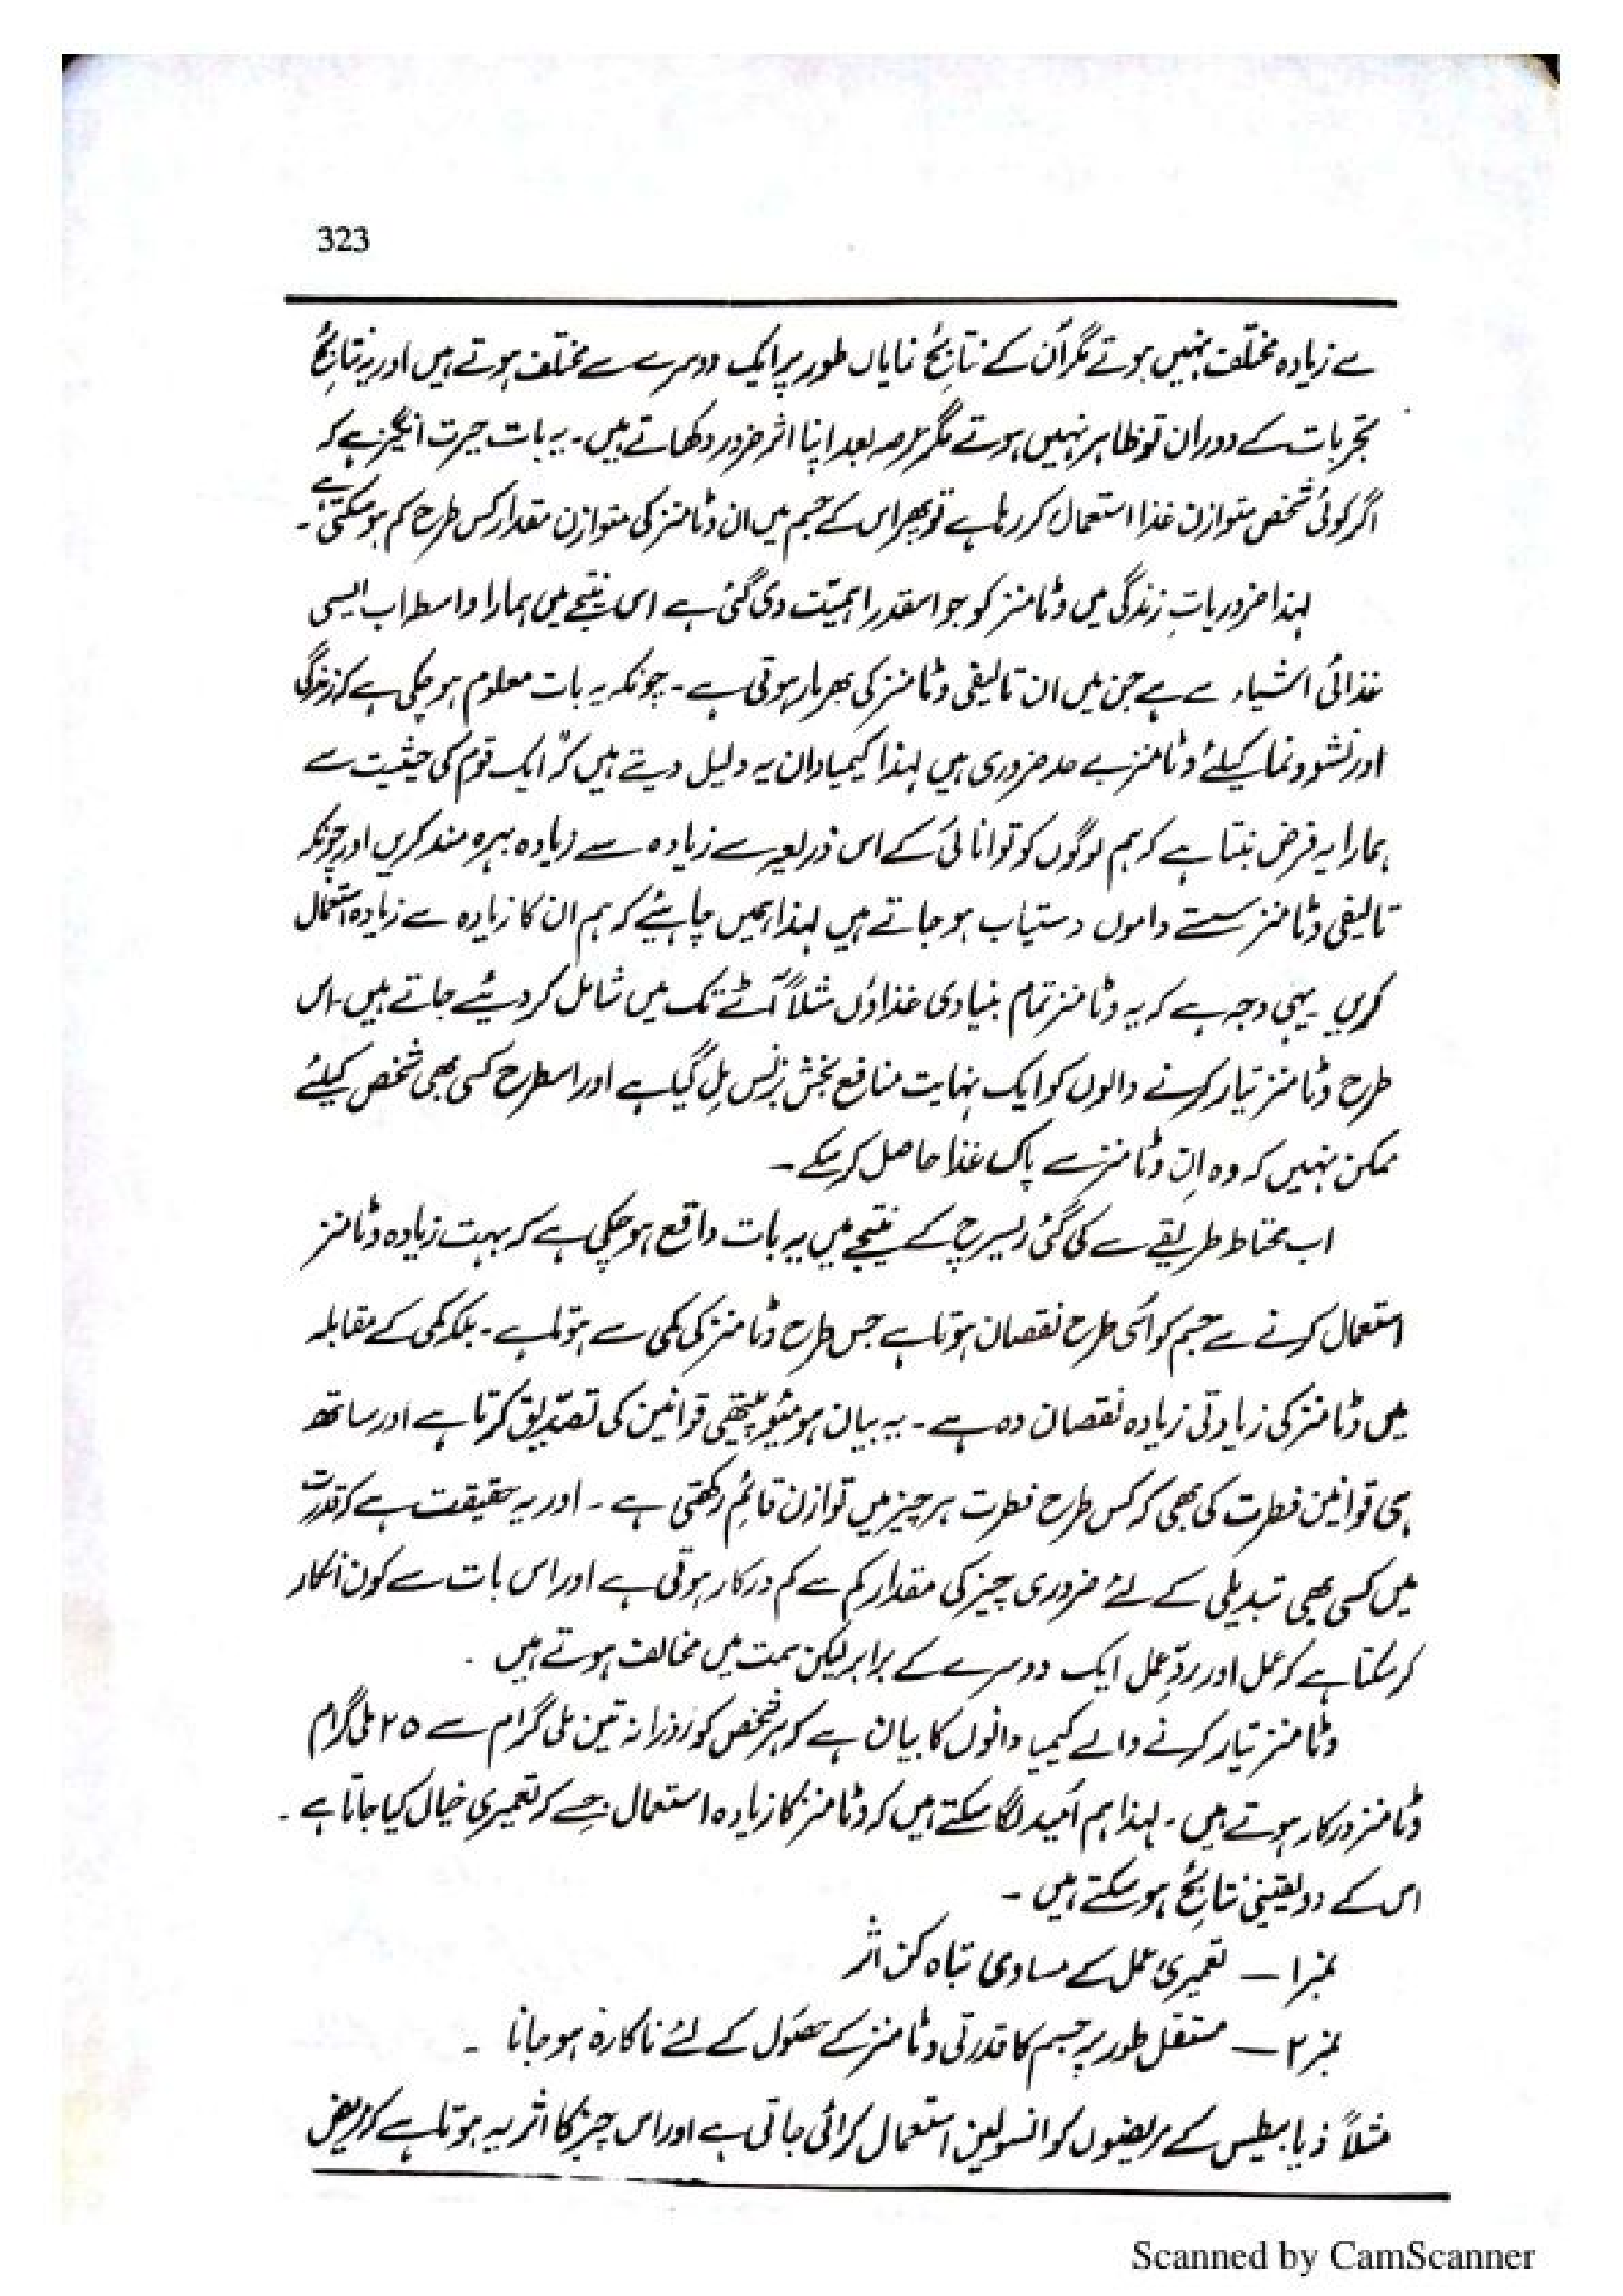 323
سے زیادہ مختلف نہیں ہوتے مگر اُن کے نتائج نمایاں طور پر ایک دوسرے سے مختلف ہوتے ہیں اور یہ نتائج
تجربات کے دوران تو ظاہر نہیں ہوتے مگر عرصہ بعد اپنا اثر ضرور دکھاتے ہیں۔ یہ بات حیرت انگیز ہے کہ
اگر کوئی شخص متوازن غذا استعمال کر رہا ہے تو پھر اس کے جسم میں ان وٹامنز کی متوازن مقدار کس طرح کم ہو سکتی ہے۔
لہذا ضروریاتِ زندگی میں وٹامنز کو جو اسقدر اہمیّت دی گئی ہے اس نتیجے میں ہمارا واسطہ اب ایسی
غذائی اشیاء سے ہے جن میں ان تالیفی وٹامنز کی بھرمار ہوتی ہے۔ چونکہ یہ بات معلوم ہو چکی ہے کہ زندگی
اور نشوونما کیلئے وٹامنز بے حد ضروری ہیں لہذا کیمیادان یہ دلیل دیتے ہیں کہ "ایک قوم کی حیثیت سے
ہمارا یہ فرض بنتا ہے کہ ہم لوگوں کو توانائی کے اس ذریعے سے زیادہ سے زیادہ بہرہ مند کریں اور چونکہ
تالیفی وٹامنز سستے داموں دستیاب ہو جاتے ہیں لہذا ہمیں چاہیئے کہ ہم ان کا زیادہ سے زیادہ استعمال
کریں۔ یہی وجہ ہے کہ یہ وٹامنز تمام بنیادی غذاؤں مثلاً آٹے تک میں شامل کر دیئے جاتے ہیں۔ اس
طرح وٹامنز تیار کرنے والوں کو ایک نہایت منافع بخش بزنس مِل گیا ہے اور اسطرح کسی بھی شخص کیلئے
ممکن نہیں کہ وہ اِن وٹامنز سے پاک غذا حاصل کر سکے۔
اب محتاط طریقے سے کی گئی ریسرچ کے نتیجے میں یہ بات واقع ہو چکی ہے کہ بہت زیادہ وٹامنز
استعمال کرنے سے جسم کو اُسی طرح نقصان ہوتا ہے جس طرح وٹامنز کی کمی سے ہوتا ہے۔ بلکہ کمی کے مقابلہ
میں وٹامنز کی زیادتی زیادہ نقصان دہ ہے۔ یہ بیان ہومیوپیتھی قوانین کی تصدیق کرتا ہے اور ساتھ
ہی قوانین فطرت کی بھی کہ کس طرح فطرت ہر چیز میں توازن قائم رکھتی ہے۔ اور یہ حقیقت ہے کہ قدرت
میں کسی بھی تبدیلی کے لئے ضروری چیز کی مقدار کم سے کم درکار ہوتی ہے اور اس بات سے کون انکار
کر سکتا ہے کہ عمل اور ردِّ عمل ایک دوسرے کے برابر لیکن سمت میں مخالف ہوتے ہیں۔
وٹامنز تیار کرنے والے کیمیا دانوں کا بیان ہے کہ ہر شخص کو روزانہ تین ملی گرام سے ۲۵ ملی گرام
وٹامنز درکار ہوتے ہیں۔ لہذا ہم اُمید لگا سکتے ہیں کہ وٹامنز کا زیادہ استعمال جسے کہ تعمیری خیال کیا جاتا ہے۔
اس کے دو یقینی نتائج ہو سکتے ہیں۔
نمبر ۱ — تعمیری عمل کے مساوی تباہ کن اثر
نمبر ۲ — مستقل طور پر جسم کا قدرتی وٹامنز کے حصول کے لئے ناکارہ ہو جانا۔
مثلاً ذیابیطس کے مریضوں کو انسولین استعمال کرائی جاتی ہے اور اس چیز کا اثر یہ ہوتا ہے کہ مریض
Scanned by CamScanner